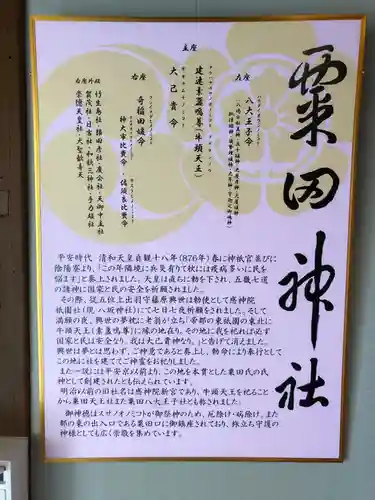 粟田神社
主座
建速素盞嗚尊(牛頭天王)
大己貴命
左座
八大王子命
右座
奇稲田媛命
神大市比賣命・佐須良比賣命
右座外殿
竹生島社・猿田彦社・度会社・天御中主社
賀茂社・日吉社・和歌三神社・手力雄社
崇徳天皇社・大聖歓喜天
平安時代 清和天皇貞観十八年(876年)春に神祇官並びに
陰陽寮より、「この年隣境に兵災有りて秋には疫病多いに民を
悩ます」と奏上されました。天皇は直ちに勅を下され、五畿七道
の諸神に国家と民の安全を祈願されました。
その際、従五位上出羽守藤原興世は勅使として感神院
祇園社(現 八坂神社)にて七日七夜祈願をされました。そして
満願の夜、興世の夢枕に老翁が立ち「帝都の東祇園の東北に
牛頭天王(素盞嗚尊)に縁の地在り。その地に我を祀れば必ず
国家と民は安全なり。我は大己貴神なり。」と告げて消えました。
興世は夢とは思わず、ご神意であると奏上し、勅命により奉行として
この地に社を建ててご神霊をお祀りしました。
また一説には平安京以前より、この地を本貫とした粟田氏の氏
神として創建されたとも伝えられています。
明治以前の旧社名は感神院新宮であり、牛頭天王を祀ること
から粟田天王社また粟田八大王子社とも称されました。
御神徳はスサノオノミコトが御祭神のため、厄除け・病除け。また
都の東の出入口である粟田口に御鎮座されており、旅立ち守護の
神様としても広く崇敬を集めています。